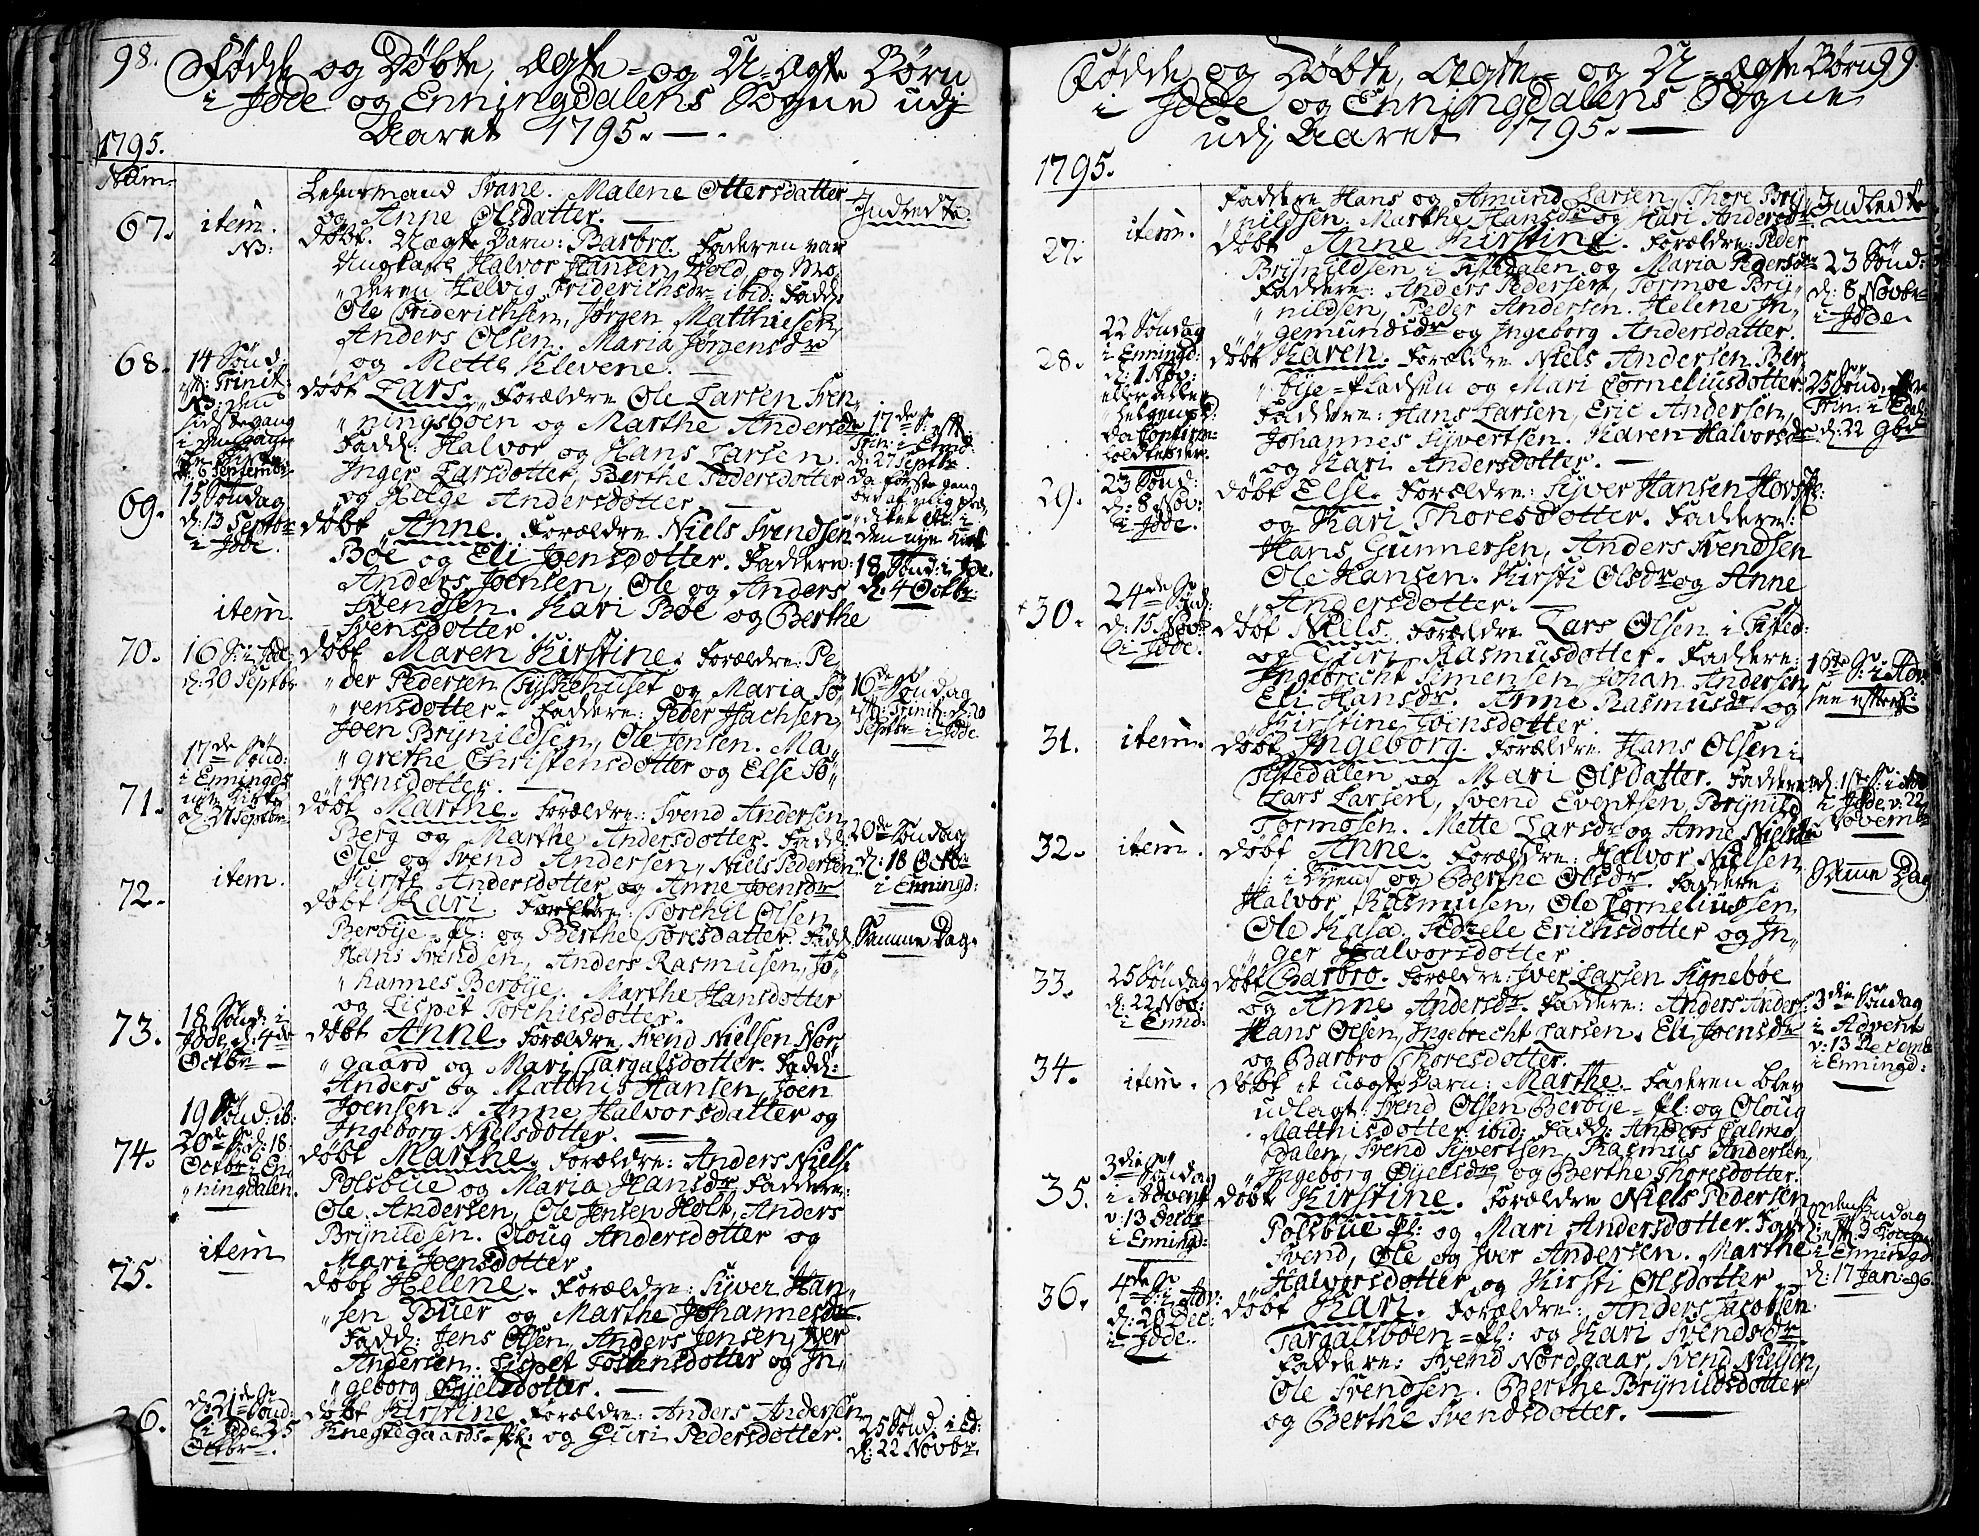 98. Fødde og Døbte, Ægte- og U-Ægte Børn
i Idde og Enningdalens Sogne udj
Aaret 1795.
1795.
Num.
Lehnsmand Svane. Malene Ottersdatter
og Anne Olsdatter.
Indledte.
67. item. NB:
døbt. Uægte Barn: Barbro. Faderen var
Ungkarl Halvor Hansen Hold og Mo,
"deren Helvig Friderichsdr ibid: Fadd:
Ole Friderichsen, Jørgen Matthiesen,
Anders Olsen. Maria Jørgensdr
og Mette Klevene.
68. 14 Sønd:
eft: Trinit:
NB: den
sidste Gang
i den gamle
Kirke
d. 6 Septembr
døbt Lars. Forældre Ole Larsen Sven,
"ningsbøen og Marthe Andersdr
Fadd: Halvor og Hans Larsen.
Inger Larsdotter, Berthe Pedersdotter
og Helge Andersdotter
17de S. eft:
Trin: i End:
d: 27 Septbr
Da første gang
den nye Kirke
69. 15 Søndag
d: 13 Septbr
i Idde.
døbt Anne. Forældre Niels Svendsen
Boe og Eli Joensdotter. Faddere:
Anders Joensen, Ole og Anders
Svendsen. Kari Boe og Berthe
Svensdotter
18 Sønd: i Ide.
d: 4 Octbr:
item.
70. 16 S: i Ide
d: 20 Septbr
døbt Maren Kirstine. Forældre: Pe,
"der Pedersen Tydskehuset og Maria Sø,
"rensdotter. Faddere: Peder Isachsen,
Joen Brynildsen, Ole Jensen. Ma,
"grethe Christensdotter og Else Sø,
"rensdotter.
16de Søndag
eft: Trinit: d: 20
Septbr i Idde.
71. 17de Sønd:
i Enningds
nye Kirke
d. 27 Septbr
døbt Marthe. Forældre: Svend Andersen
Berg og Marthe Andersdotter. Fadd:
Ole og Svend Andersen, Niels Pedersen.
Kirsti Andersdotter og Anne Joensdr
20de Søndag
d: 18 Octbr
i Enningd:
72. item.
døbt Kari. Forældre: Torchil Olsen
Berbye-Pl: og Berthe Toresdatter. Fadd:
Hans Svendsen, Anders Rasmusen, Jo,
"hannes Berbye. Marthe Hansdotter
og Lispet Torchilsdotter.
Samme Dag.
73. 18 Sønd: i
Idde, d: 4de
Octbr
døbt Anne. Forældre Svend Nielsen Nor,
"gaard og Mari Targalsdotter. Fadd:
Anders og Matthis Hansen, Joen
Joensen. Anne Halvorsdatter og
Ingeborg Nielsdotter.
74. 19 Sønd: ib:
20de S. d: 18
Octbr i En,
"ningdalen.
døbt Marthe. Forældre: Anders Niels:
Polsbue og Maria Hansdr Faddere:
Ole Andersen, Ole Jensen Holt, Anders
Brynildsen. Oloug Andersdotter og
Mari Joensdotter
75. item
døbt Helene. Forældre: Syver Han,
"sen Buer og Marthe Johannesdr.
Fadd: Jens Olsen, Anders Jensen, Iver
Andersen. Lispet Tostensdotter og In,
"geborg Eyelsdotter.
76. d: 21de Sønd:
i Idde, 25
Octbr.
døbt Kirstine. Forældre: Anders Andersen
Knegtegaards-Pl: og Guri Pedersdotter.
25 Sønd. i Ed:
d: 22 Novbr.
Fødde og Døbte, Ægte- og U-Ægte Børn 99.
i Idde og Enningdalens Sogne
udj Aaret 1795.
1795.
Faddere Hans og Amund Larsen, Thore Bry,
"nildsen. Marthe Hansdr og Guri Andersdr
Indledte
27. item.
døbt Anne Kirstine. Forældre: Peder
Brynildsen i Tistedalen og Maria Pedersdr
Faddere: Anders Pedersen, Tormoe Bry,
"nildsen, Peder Andersen. Helene In,
"gemundsdr og Ingeborg Andersdatter.
23 Sønd:
d: 8 Novbr
i Idde.
28. 22 Søndag
i Enningd:
d: 1 Nov:
eller Alle
Helgens d:
døbt Karen. Forældre Niels Andersen Ber,
"bye-Pladsen og Mari Corneliusdotter.
Faddere: Hans Larsen, Eric Andersen,
Johannes Syvertsen. Karen Halvorsdr
og Kari Andersdotter.
25 Sønd. efter
Trin: i
d: 22 9br
29. 23 Sønd:
d: 8 Nov:
i Idde.
døbt Else. Forældre: Syver Hansen Hovs Pl:
og Kari Thoresdotter. Faddere:
Hans Gunnersen, Anders Svendsen
Ole Hansen. Kirsti Olsdr og Anne
Andersdotter.
30. 24de Sønd:
d: 15 Nov:
i Idde.
døbt Niels. Forældre Lars Olsen i Tisted:
og Guri Rasmusdotter. Faddere:
Ingebrecht Simensen, Johan Andersen,
Eli Hansdr. Anne Rasmusdr og
Kirstine Joensdotter
1ste S: i Adv:
31. item.
døbt Ingeborg. Forældre: Hans Olsen i
Tistedalen og Mari Olsdatter. Faddere:
Lars Larsen, Svend Eventsen, Brynild
Tormosen. Mette Larsdr og Anne Nielsdr
i Idde, v: 22
Novembr
32. item.
døbt Anne. Forældre: Halvor Nielsen
i Byen og Berthe Olsdr Faddere
Halvor Rasmusen, Ole Corneliussen,
Ole Kasa. Sidzele Erichsdotter og In,
"ger Halvorsdotter
Samme Dag
33. 25 Søndag
d: 22 Nov:
i Ennd:
døbt Barbro. Forældre: Iver Larsen Signebøe
og Anne Andersdr. Faddere: Anders Anders:
Hans Olsen, Ingebrecht Larsen. Eli Joensdr
og Barbro Thoresdotter.
3die Søndag
i Advent
v: 13 Decemb:
i Enningd:
34. item.
døbt et uægte Barn: Marthe. Faderen blev
udlagt: Svend Olsen Berbye-Pl: og Oloug
Matthisdotter ibid: Fadd: Anders Calmo
"dalen, Svend Syvertsen, Rasmus Andersen,
Ingeborg Eyelsdr og Berthe Thoresdotter.
35. 3die Søndag
i Advent
v: 13 Decbr
i Enningd:
døbt Kirstine. Forældre Niels Pedersen
Polsbue Pl: og Mari Andersdotter. Fadd:
Svend, Ole og Iver Andersen. Marthe
Halvorsdotter og Kirsti Olsdotter
Søndag
eft: 3 Konger
i Enningd
d: 17 Jan: 96.
36. 4de S: i Adv:
d: 20 Dec:
i Idde.
døbt Kari. Forældre: Anders Jacobsen
Targalsbøen-Pl: og Kari Svendsdr
Faddere: Svend Nordgaar, Svend Nielsen,
Ole Svendsen. Berthe Brynildsdotter
og Berthe Svendsdotter.